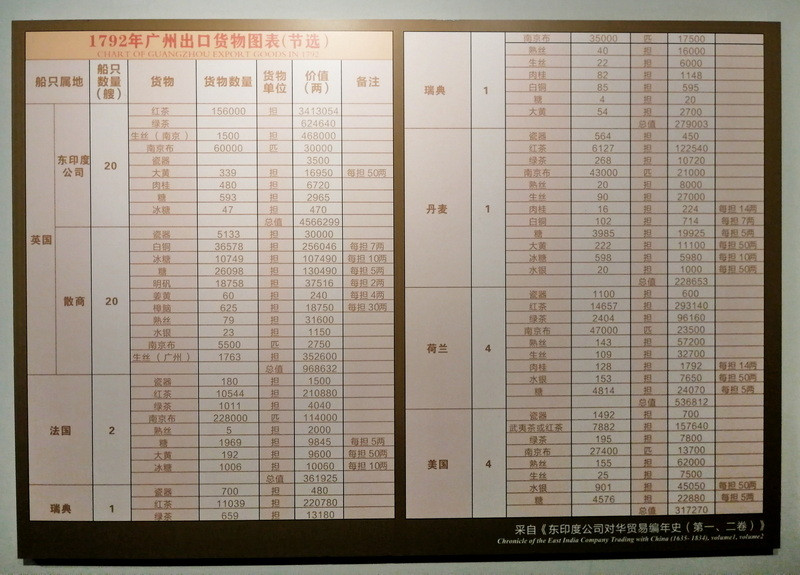 1792年广州出口货物图表(节选)
CHART OF GUANGZHOU EXPORT GOODS IN 1792
船只属地 船只数量(艘) 货物 货物数量 货物单位 价值(两) 备注
英国
东印度公司 20
红茶 156000 担 3413054
绿茶 624640
生丝(南京) 1500 担 468000
南京布 60000 匹 30000
瓷器 3500
大黄 339 担 16950 每担 50两
肉桂 480 担 6720
糖 593 担 2965
冰糖 47 担 470
总值 4566299
散商 20
瓷器 5133 担 30000
白铜 36578 担 256046 每担 7两
冰糖 10749 担 107490 每担 10两
糖 26098 担 130490 每担 5两
明矾 18758 担 37516 每担 2两
姜黄 60 担 240 每担 4两
樟脑 625 担 18750 每担 30两
熟丝 79 担 31600
水银 23 担 1150
南京布 5500 匹 2750
生丝(广州) 1763 担 352600
总值 968632
法国 2
瓷器 180 担 1500
红茶 10544 担 210880
绿茶 1011 担 4040
南京布 228000 匹 114000
熟丝 5 担 2000
糖 1969 担 9845 每担 5两
大黄 192 担 9600 每担 50两
冰糖 1006 担 10060 每担 10两
总值 361925
瑞典 1
瓷器 700 担 480
红茶 11039 担 220780
绿茶 659 担 13180
瑞典 1
南京布 35000 匹 17500
熟丝 40 担 16000
生丝 22 担 6000
肉桂 82 担 1148
白铜 85 担 595
糖 4 担 20
大黄 54 担 2700
总值 279003
丹麦 1
瓷器 564 担 450
红茶 6127 担 122540
绿茶 268 担 10720
南京布 43000 匹 21000
熟丝 20 担 8000
生丝 90 担 27000
肉桂 16 担 224 每担 14两
白铜 102 担 714 每担 7两
糖 3985 担 19925 每担 5两
大黄 222 担 11100 每担 50两
冰糖 598 担 5980 每担 10两
水银 20 担 1000 每担 50两
总值 228653
荷兰 4
瓷器 1100 担 600
红茶 14657 担 293140
绿茶 2404 担 96160
南京布 47000 匹 23500
熟丝 143 担 57200
生丝 109 担 32700
肉桂 128 担 1792 每担 14两
水银 153 担 7650 每担 50两
糖 4814 担 24070 每担 5两
总值 536812
美国 4
瓷器 1492 担 700
武夷茶或红茶 7882 担 157640
绿茶 195 担 7800
南京布 27400 匹 13700
熟丝 155 担 62000
生丝 25 担 7500
水银 901 担 45050 每担 50两
糖 4576 担 22880 每担 5两
总值 317270
采自《东印度公司对华贸易编年史(第一、二卷)》
Chronicle of the East India Company Trading with China (1635- 1834), volume1, volume2